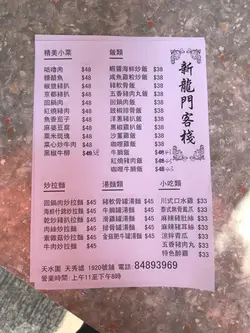 新龍門客棧
精美小菜
咕嚕肉 $48
糖醋魚 $48
椒鹽豬扒 $48
京都豬扒 $48
回鍋肉 $48
紅燒豬肉 $48
魚香茄子 $48
麻婆豆腐 $48
粟米斑塊 $48
菜心炒牛肉 $48
黑椒牛柳
飯類
蝦醬海鮮炒飯 $38
咸魚雞粒炒飯 $38
豬軟骨飯 $38
五香豬肉丸飯 $38
回鍋肉飯 $38
豉椒排骨飯 $38
洋蔥豬扒飯 $38
黑椒雞扒飯 $38
沙薑雞飯 $38
咖喱雞飯 $38
牛腩飯
紅燒豬肉飯
咖喱牛腩飯
炒拉麵
回鍋肉炒拉麵 $45
海鮮炒拉麵 $45
乾炒豬扒拉麵 $45
肉絲炒拉麵 $45
素菜炒拉麵 $45
牛肉炒拉麵 $45
湯麵類
豬軟骨湯麵 $45
牛腩湯麵 $45
豬扒湯麵 $45
雞扒湯麵 $45
排骨湯麵 $45
金菇肥牛湯麵 $45
小吃類
川式口水雞 $33
泰式無骨鳳爪 $33
麻辣豬肚絲 $33
麻辣豬耳絲 $33
涼拌青瓜 $33
五香豬肉丸 $33
特色醉雞 $33
天水圍 天秀墟 1920號舖 電話:84893969
營業時間:上午11至下午8時